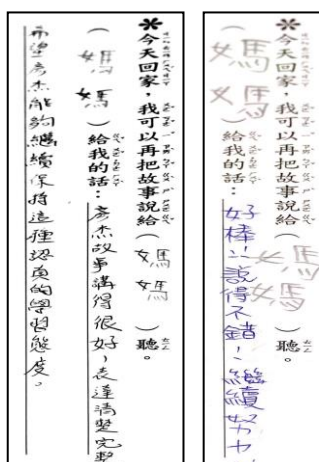 ＊今天回家，我可以再把故事說給（媽媽）聽。
（媽媽）給我的話：彥杰故事講得很好，表達清楚完整
希望彥杰能夠繼續保持這種認真的學習態度。
＊今天回家，我可以再把故事說給（媽媽）聽。
（媽媽）給我的話：好棒！說得不錯！繼續努力